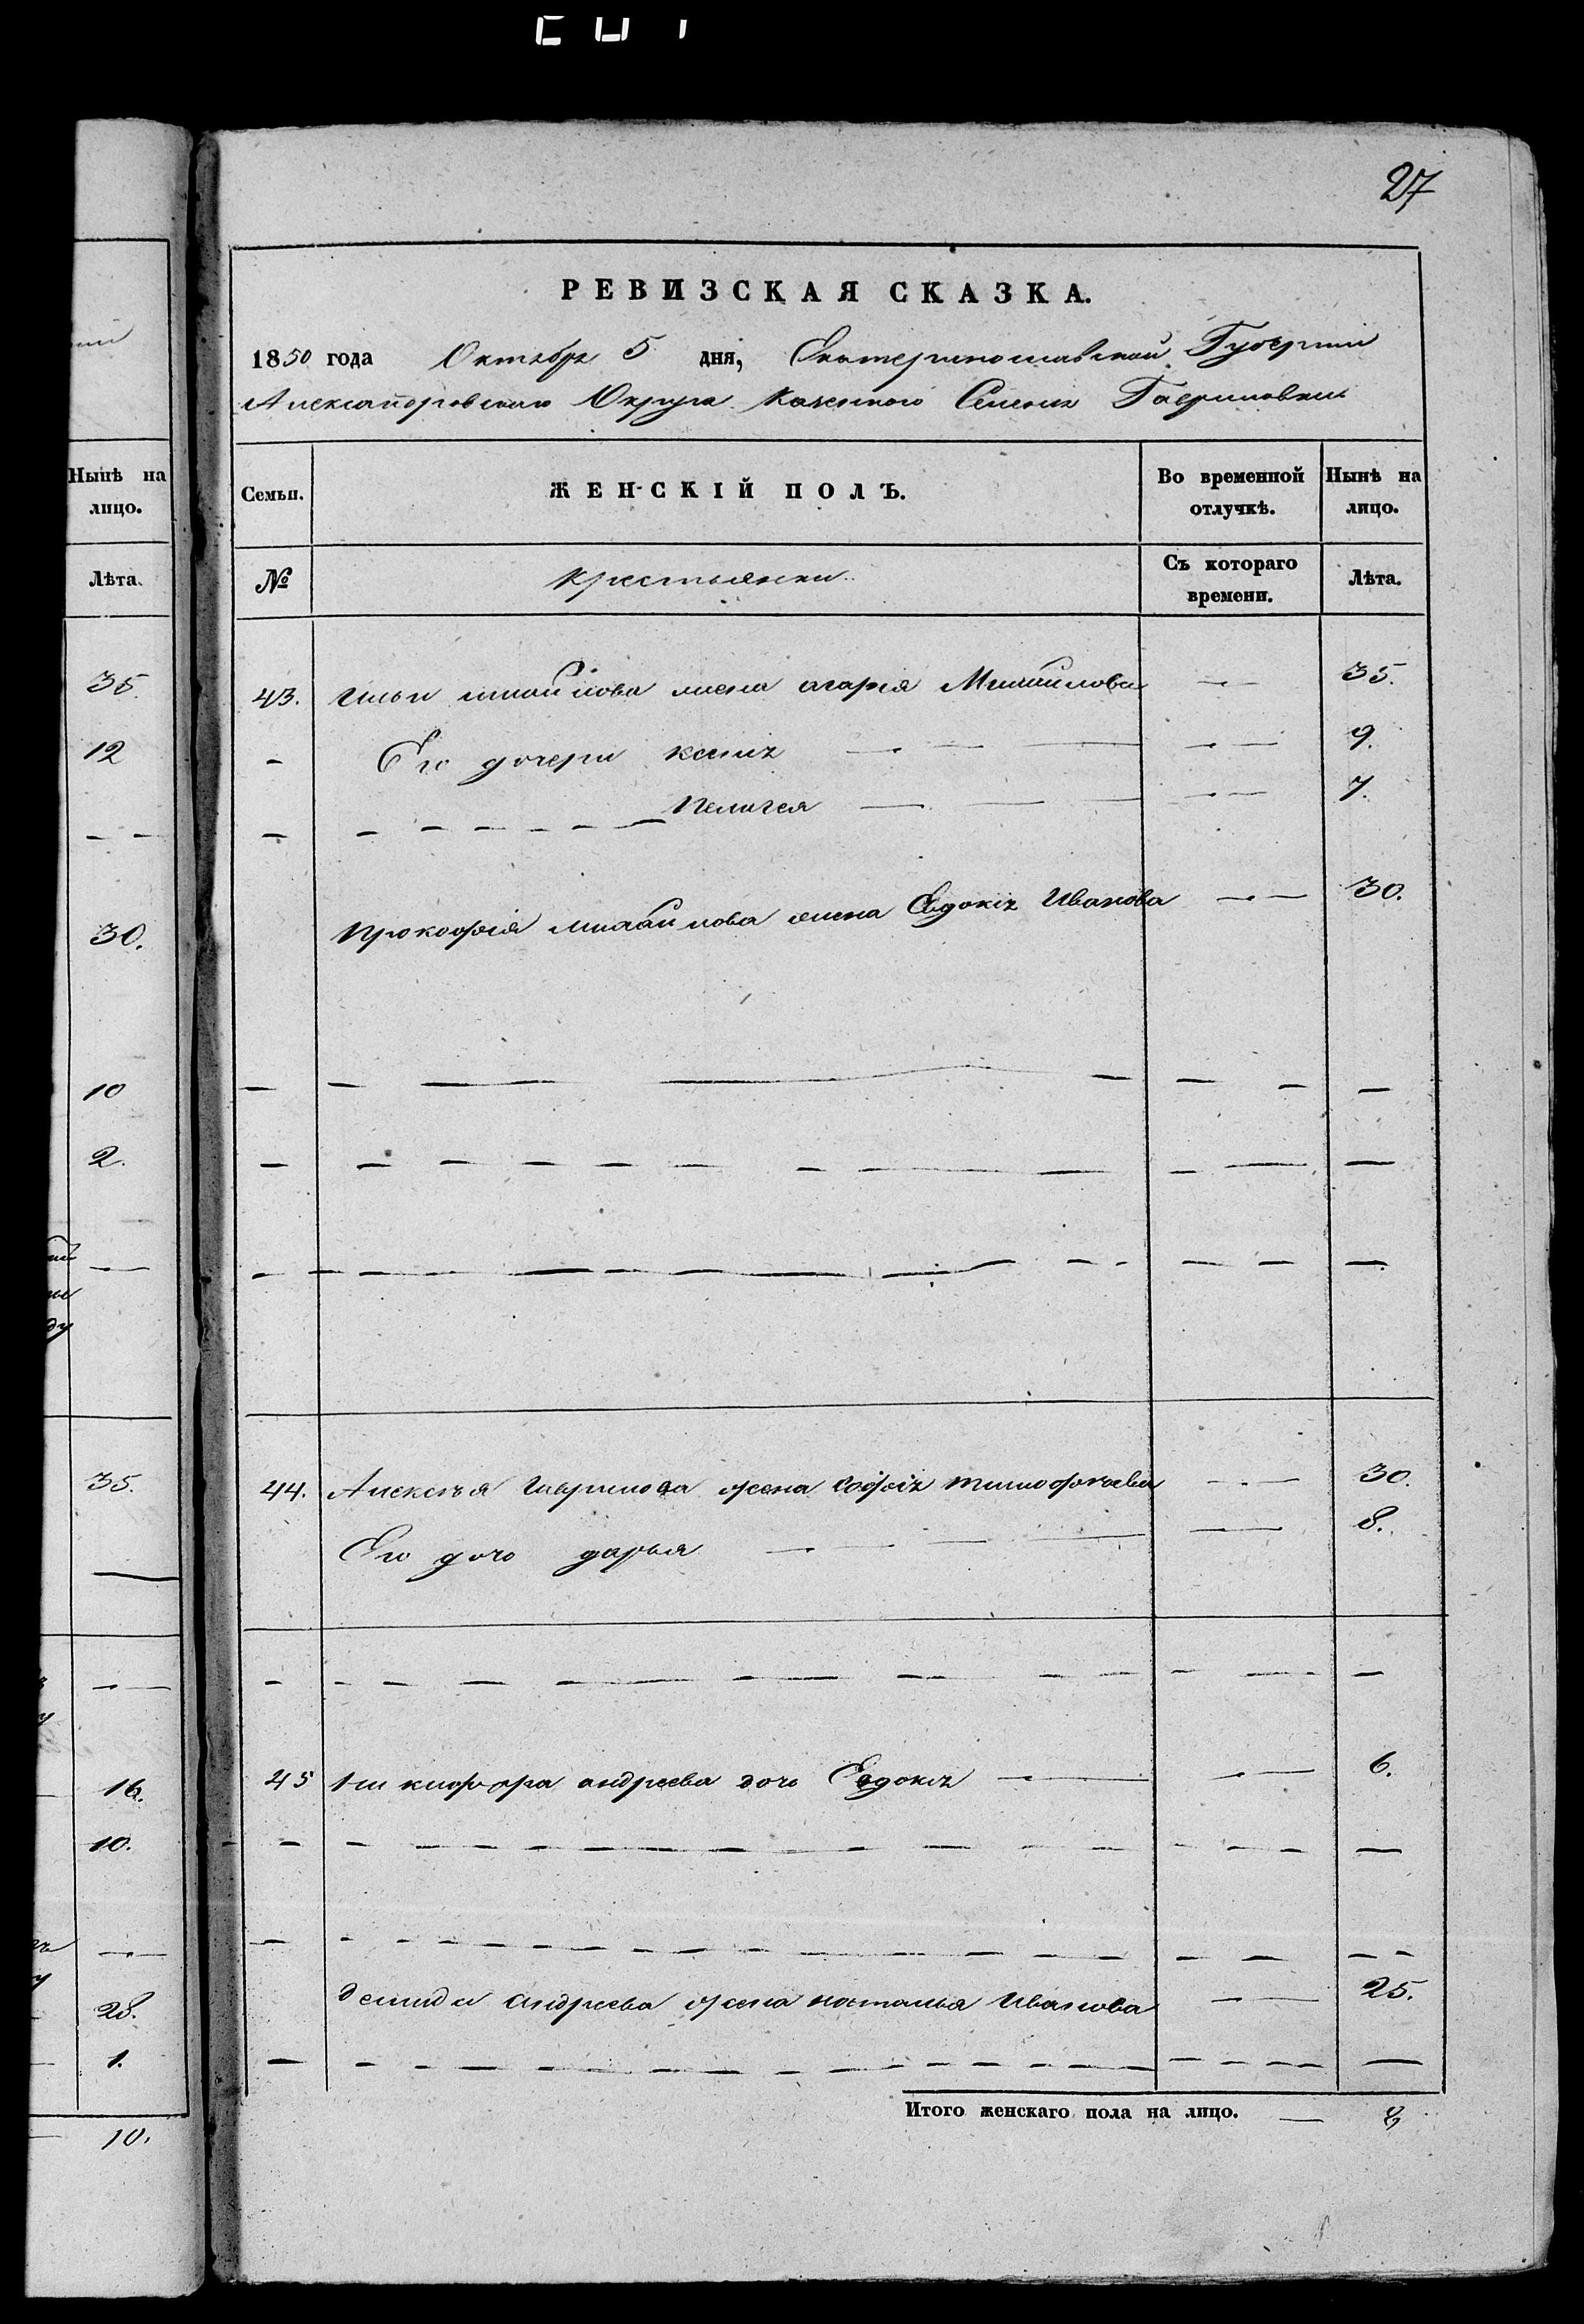 27
РЕВИЗСКАЯ СКАЗКА.
1850 года Октября 5 дня, Екатеринославской Губерніи
Александровскаго Округа Казеннаго Селенія Гавриловки
Нынѣ на лицо.
Лѣта.
35.
12
30.
10
2.
35.
16.
10.
28.
1.
10.
Семьи. ЖЕНСКІЙ ПОЛЪ. Во временной отлучкѣ. Нынѣ на лицо.
№ Крестьянки Съ котораго времени. Лѣта.
43. Ильи михайлова жена Михайлова — — 35.
— Его дочери ксенія — — — — — 9.
— — — — — — Пелагея — — — — — 7.
Прокофія михайлова жена Евдокія Иванова — — 30.
44. Алексѣя Гаврилова жена Софія тимофѣева — — 30.
Его дочь дарья — — — — 8.
45 Никифора андреева дочь Евдокія — — — 6.
демида андреева жена наталья Иванова — — 25.
Итого женскаго пола на лицо. — 8